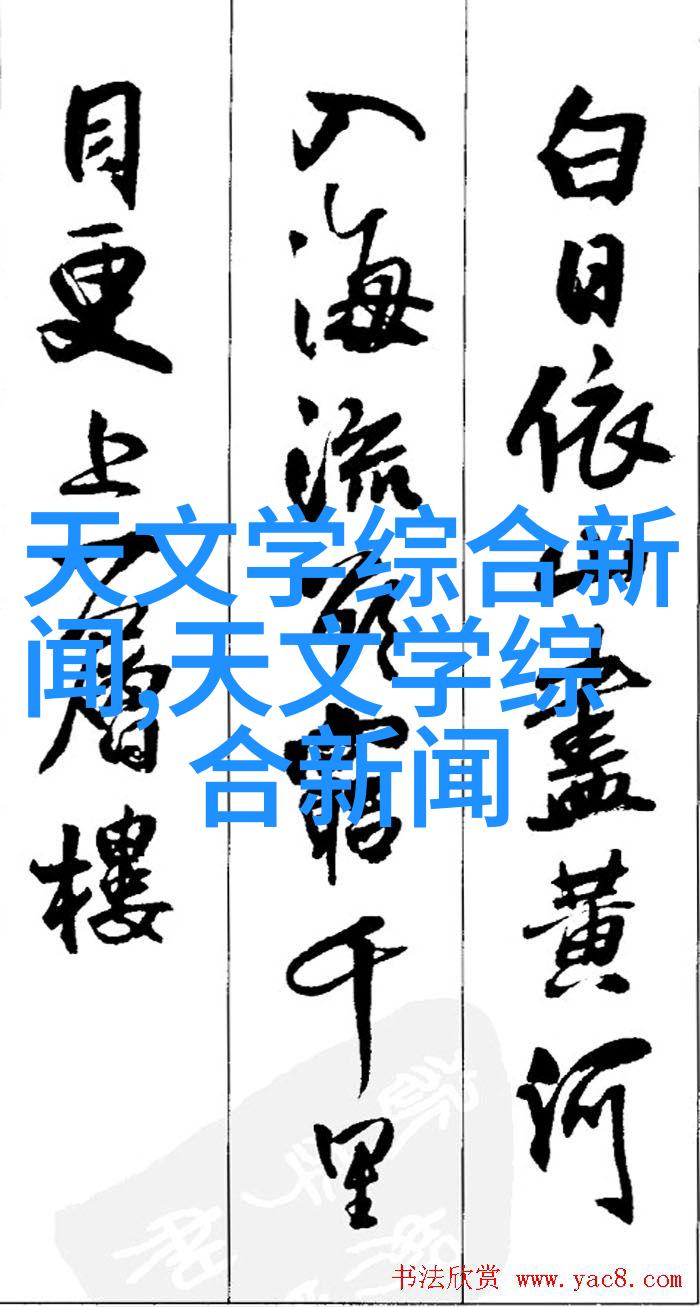 白日依山盡黄河
入海流欲窮千里
目更上一層樓
天文学综合新
闻,天文学综
合新闻
书法欣赏 www.yac8.com